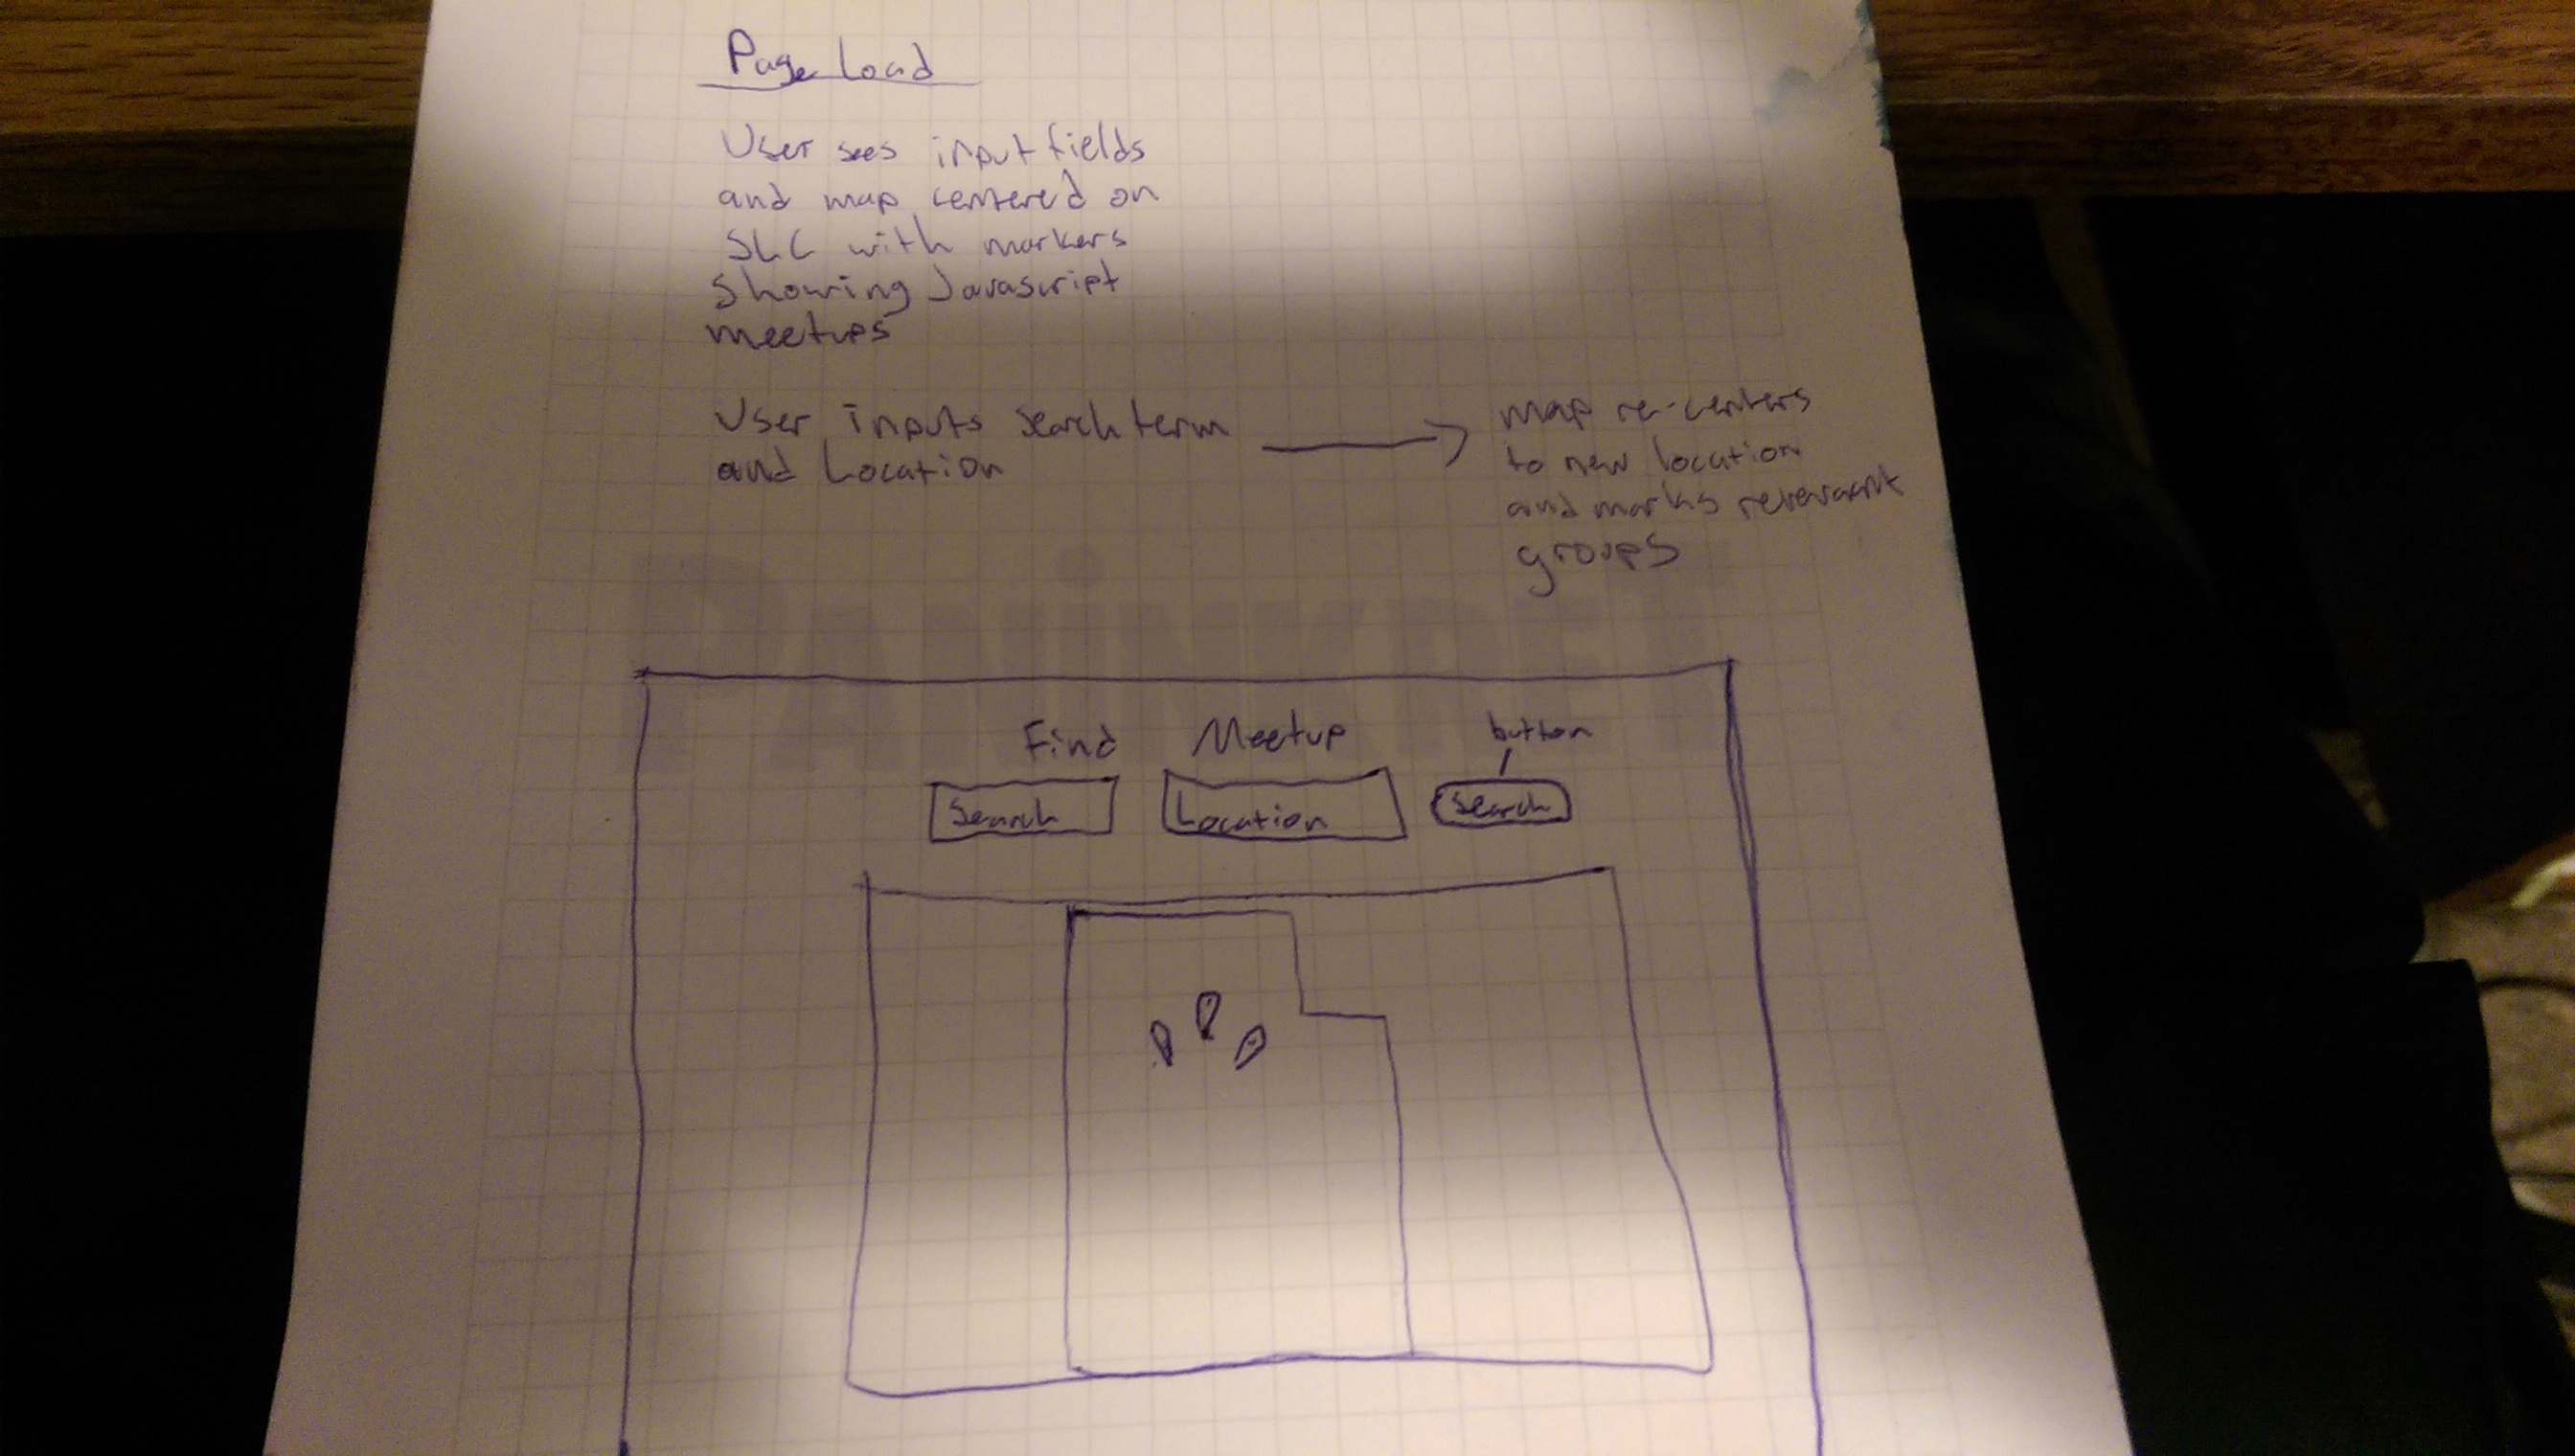 Page Load
User sees input fields
and map centered on
SLC with markers
Showing Javascript
meetups
User inputs search term
and Location
map re-centers
to new location
and marks relevant
groups
Find Meetup
button
Search
Location
Search